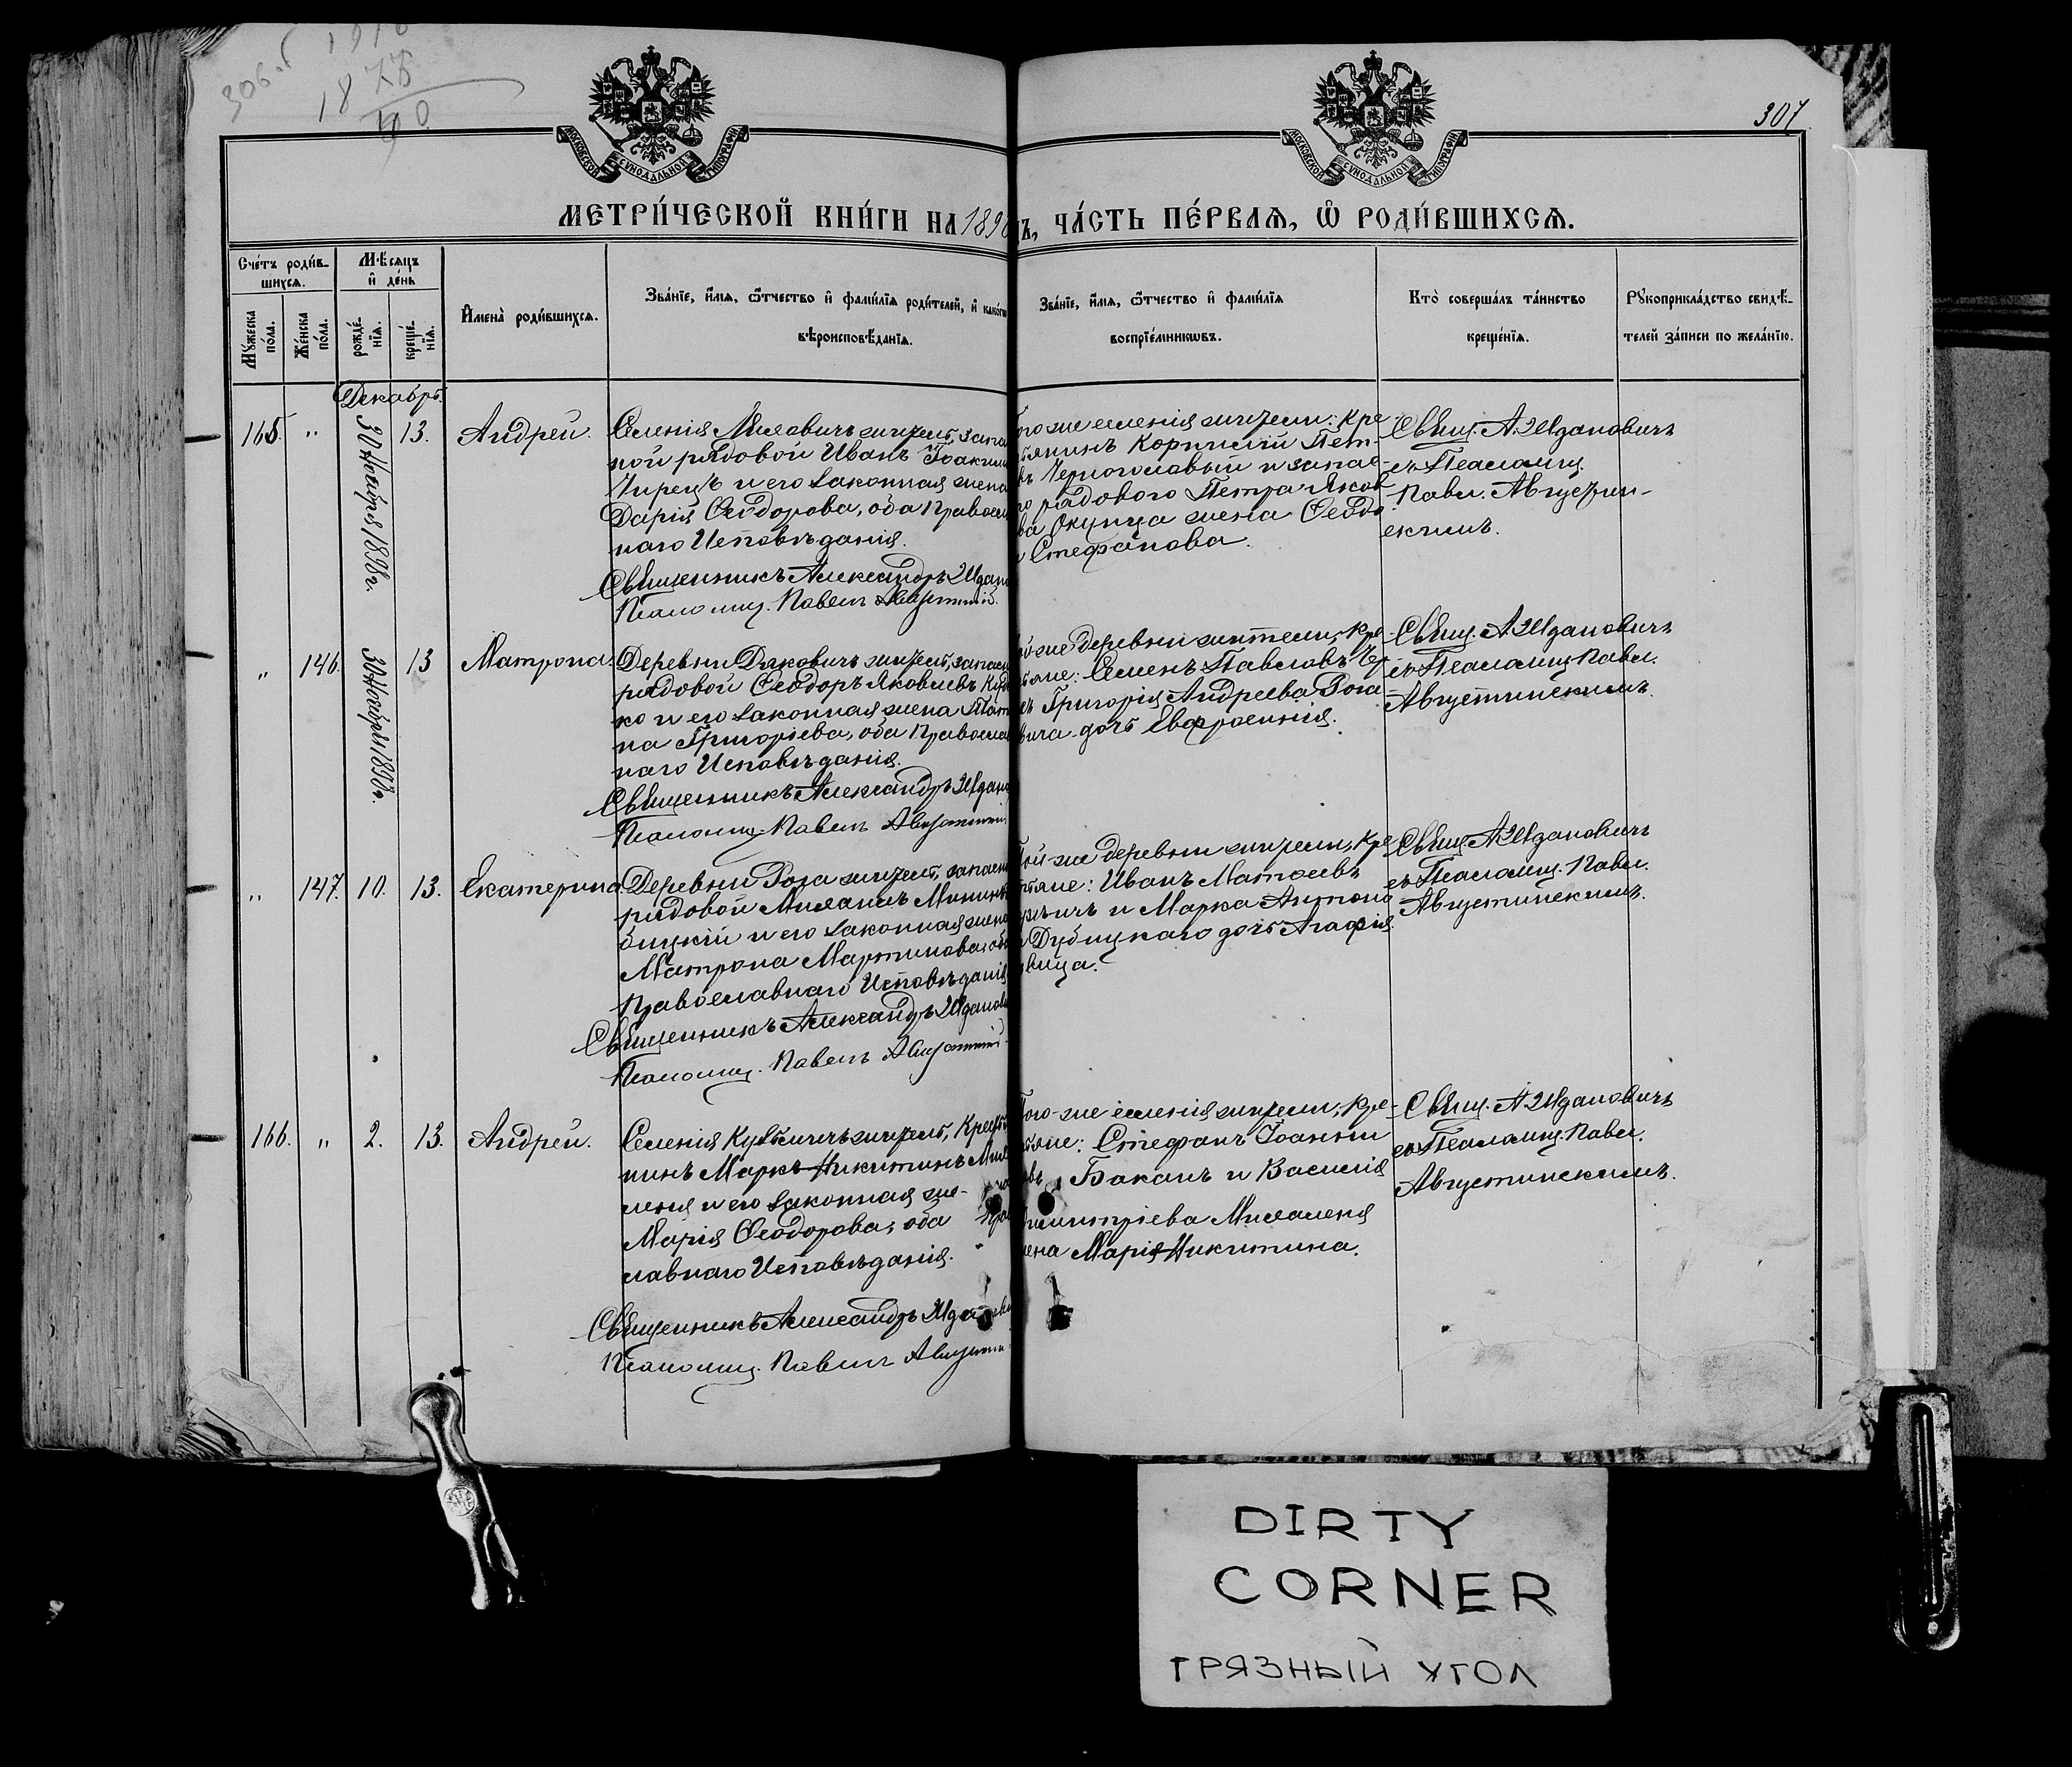 306 об
18
307
МОСКОВСКОЙ СѴНОДАЛЬНОЙ ТИПОГРАФІИ
МОСКОВСКОЙ СѴНОДАЛЬНОЙ ТИПОГРАФІИ
МЕТРИ́ЧЕСКОЙ КНИ́ГИ НА 1898 ЧА́СТЬ ПЕ́РВАѦ, Ѡ҆ РОДИ́ВШИХСѦ.
Сче́тъ роди́в-
шихсѧ.
Мꙋ́жеска по́ла.
Же́нска по́ла.
Мѣ́сѧцъ и҆ де́нь
рожде́-нїѧ.
креще́-нїѧ.
И҆мена̀ роди́вшихсѧ.
Зва́нїе, и҆́мѧ, ѻ҆́тчество и҆ фами́лїѧ роди́телей, и҆ како́гѡ
вѣроисповѣ́данїѧ.
Зва́нїе, и҆́мѧ, ѻ҆́тчество и҆ фами́лїѧ
воспрїе́мникѡвъ.
Кто̀ соверша́лъ та́инство
креще́нїѧ.
Рꙋкоприкла́дство свидѣ́-
телей за́писи по жела́нїю.
Декабрь.
165. " 30 Ноября 1898 г. 13. Андрей.
Селенія Милевичъ житель, запас
ной рядовой Иванъ Іоаким
Чирецъ и его законная жена
Дарія Ѳеодорова, оба Правосла
наго Исповѣданія.
Священникъ Александръ Ждано
Псаломщ. Павелъ Августинскій.
ого же селенія жители: Кре-
стьянинъ Корнилій Пет-
въ Черноголовый и запас-
го рядового Петра Яков
ва Окунца жена Ѳеодо
Стефанова.
Свящ. А. Ждановичъ
съ Псаломщ.
Павл. Августин-
скимъ.
" 146. 30 Ноября 1898 г. 13 Матрона.
Деревни Дяковичъ житель, запасн
рядовой Ѳеодоръ Яковлевъ
ко и его законная жена Тать
на Григоріева, оба Правосла
наго Исповѣданія.
Священникъ Александръ Ждано
Псаломщ. Павелъ Августинскій.
ой же деревни жители, Кре-
стьяне: Семенъ Павловъ
Григорія Андреева Рога
вича дочь Евфросинія.
Свящ. А Ждановичъ
съ Псаломщ Павл.
Августинскимъ.
" 147. 10. 13. Екатерина
Деревни Рога житель, запасн
рядовой Михаилъ Мининъ
бицкій и его законная жена
Матрона Мартинова, оба
Православнаго Исповѣданія
Священникъ Александръ Жданов
Псаломщ. Павелъ Августинскій
Той же деревни жители, Кре
стьяне: Иванъ Матѳеевъ
и Марка Антоно
Дубицкаго дочь Агафія
вица.
Свящ А Ждановичъ
съ Псаломщ. Павл.
Августинскимъ.
166. " 2. 13. Андрей.
житель, Крестья
нинъ Маркъ Никитинъ Миха
леня и его законная же-
Марія Ѳеодорова, оба Прав
славнаго Исповѣданія.
Священникъ Александръ Жданови
Псаломщ. Павелъ Августин
Того-же селенія жители, Кре-
стьяне: Стефанъ Іоанни
овъ Баканъ и Василія
Димитріева Михаленя
жена Марія Никитина.
Свящ. А Ждановичъ
съ Псаломщ. Павл.
Августинскимъ.
DIRTY
CORNER
ГРЯЗНЫЙ УГОЛ